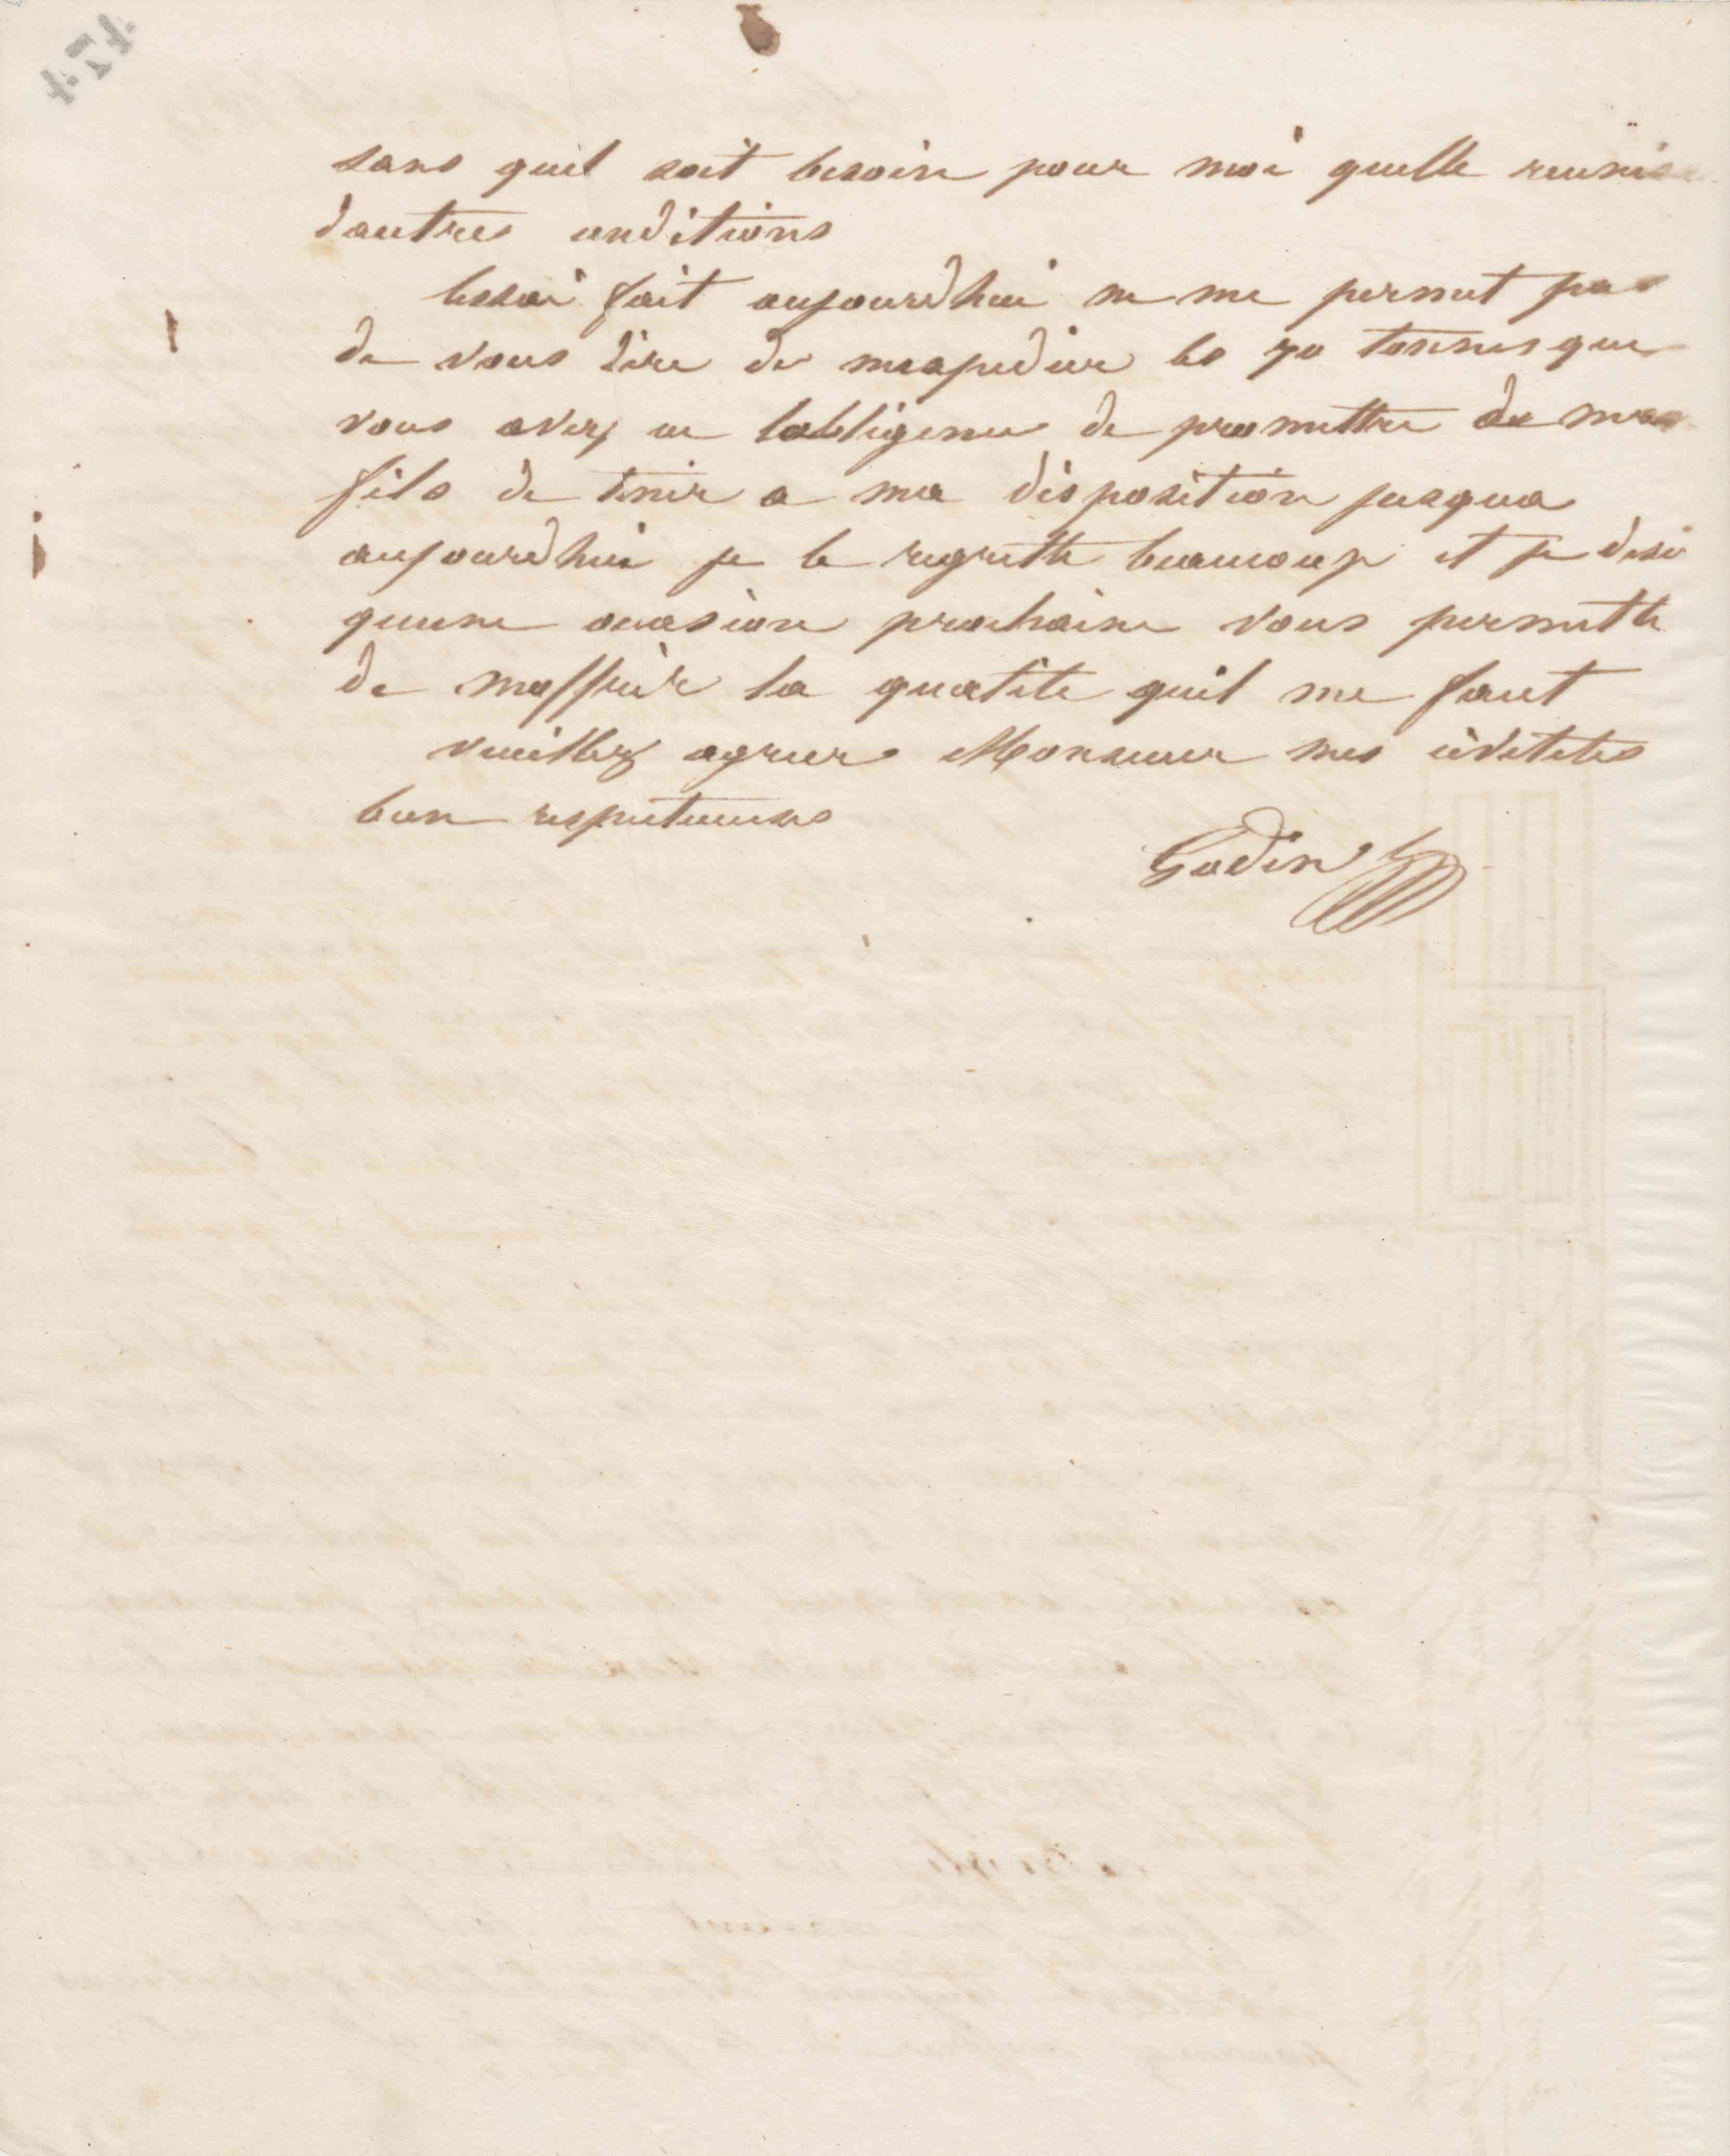 sans quil soit besoin pour moi quelle reunis
dautres conditions
lessai fait aujourdhui ne me permet pas
de vous dire de mexpedier les 70 tonnes que
vous avez eu lobligence de promettre de mon
fils de tenir a ma disposition jusqua
aujourdhui je le regrette beaucoup et je desi
quune occasion prochaine vous permette
de moffrir la quatite quil me faut
veuillez agreer Monsieur mes civitites
bien respectueuses
Godin